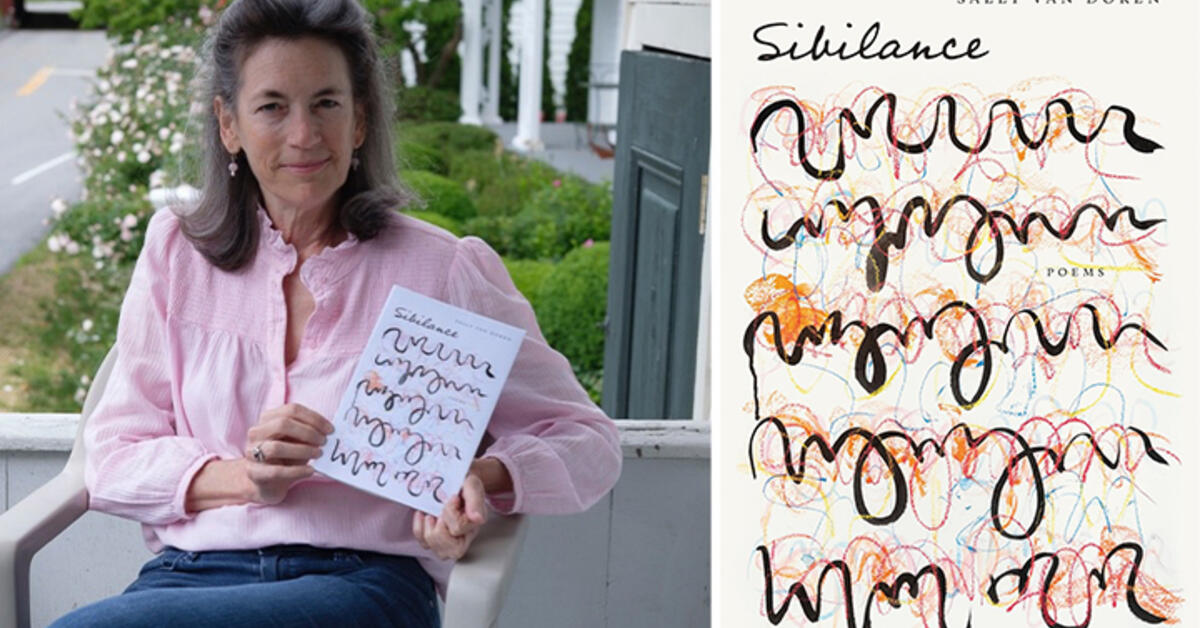 Sibilance
SALLY VAN DOREN
SALLY VAN DOREN
Sibilance
POEMS